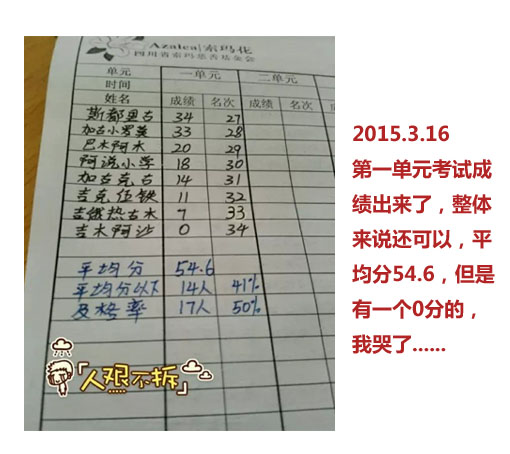 Azalea|索玛花
四川省索玛慈善基金会
单元 一单元 二单元
时间
姓名 成绩 名次 成绩 名次 成绩
斯都里古 34 27
加古小罗美 33 28
巴木阿木 20 29
阿说小学 18 30
加古克古 14 31
吉克伍铁 11 32
吉俄热古木 7 33
吉木阿沙 0 34
平均分 54.6
平均分以下 14人 41%
及格率 17人 50%
「人艰不拆」
2015.3.16
第一单元考试成
绩出来了，整体
来说还可以，平
均分54.6，但是
有一个0分的，
我哭了......